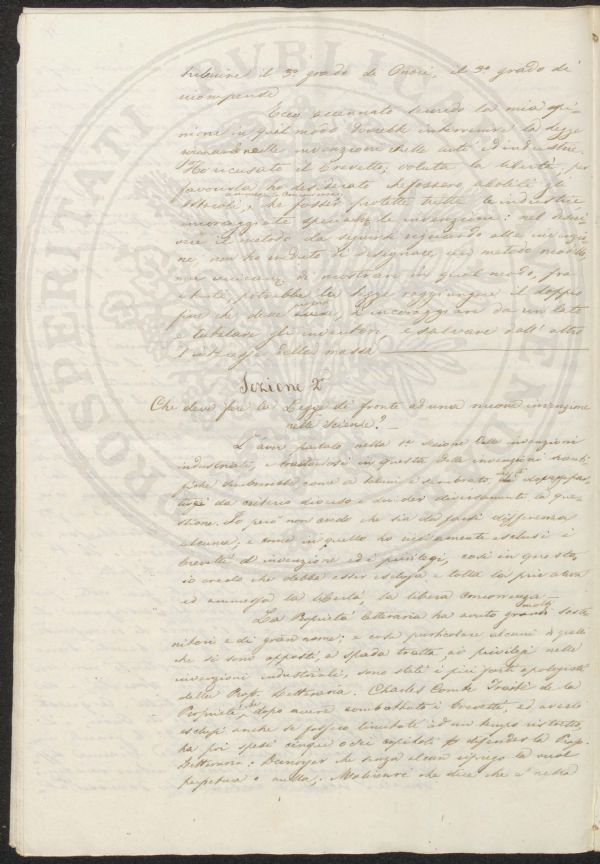 il 3º grado di Onori, il 3º grado di
ricompense
Ecco accennato secondo la mia opi-
nione in qual modo dovrebbe intervenire la legge
nelle invenzioni delle arti ed industrie.
Ho ricusato il brevetto, voluta la libertà; per
favorirla ho desiderato che fossero aboliti gli
ostacoli, che fossero protette tutte le industrie
incoraggiate le invenzioni: nel descri-
vere il metodo da seguirsi riguardo alle invenzio-
ne, non ho inteso di disegnare un metodo
ma di mostrare in qual modo, fra
tanti, potrebbe la legge raggiungere il doppio
fine che deve avere, d'incoraggiare da un lato
e tutelare gl'inventori, e salvare dall'altro
l'interesse della massa
Sezione 2ª
Che deve fare la Legge di fronte ad una nuova invenzione
nelle scienze?
L'aver parlato nella 1ª sezione delle invenzioni
industriali, e trattandosi in questa delle invenzioni scienti-
fiche sembrerebbe come a taluni è sembrato, di
da criterio diverso e decider diversamente la que-
stione. Io però non credo che sia da farsi differenza
alcuna, e come in quello ho esclusi i
brevetti d'invenzione ed i privilegi, così in questa,
io credo che debba esser esclusa e tolta la privativa
ed ammessa la libertà, la libera concorrenza.
La Proprietà letteraria ha avuto molti soste-
nitori e di gran nome; e cosa particolare alcuni di quelli
che si sono opposti, a spada tratta, ai privilegi nelle
invenzioni industriali, sono stati i più forti apologisti
della Prop. Letteraria. Charles Comte Traité de la
Propriété, dopo avere combattuto i brevetti, ed averli
esclusi anche se fossero limitati ad un tempo ristretto,
ha poi spesi cinque o sei capitoli a difender la Prop.
Letteraria: Dunoyer che senza alcun la vuol
perpetua o nulla; Molinari che dice che è nella